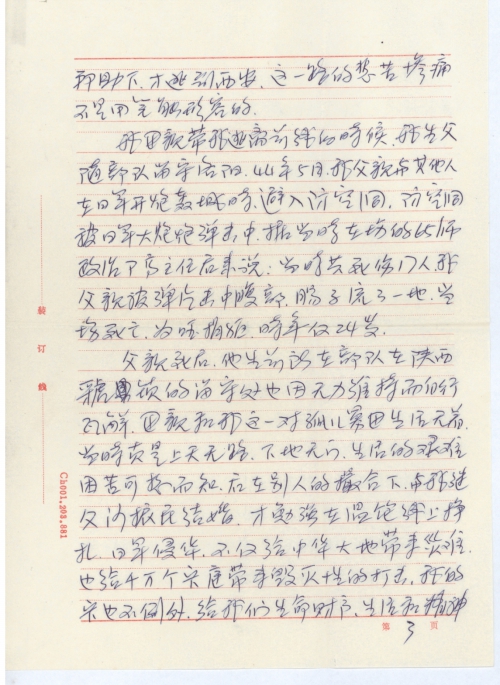 帮助下,才逃到西安,这一路的愁苦惨痛
不是用笔能形容的.
我母亲带我逃离前线的时候,我生父
随部队留守洛阳,44年5月,我父亲与其他人
在日军开炮轰城时,避入防空洞,防空洞
被日军大炮炮弹击中.据当时在场的65师
政治下方主任后来说:当时共死伤17人,我
父亲被弹片击中腹部,肠子流了一地,当
场死亡,为国捐躯,时年仅24岁.
父亲死后,他生前所在部队在陕西
镇的留守处也因无力维持而自行
瓦解.母亲和我这一对孤儿寡母生活无着,
当时真是上天无路,下地无门,生活的艰难
困苦可想而知.后在别人的撮合下,与我继
父 振民结婚,才勉强在温饱线上挣
扎.日军侵华,不仅给中华大地带来灾难,
也给千万个家庭带来毁灭性的打击,我的
家也不例外,给我们生命财产、生活和精神
装订线
Ch001.203.881
第 3 页